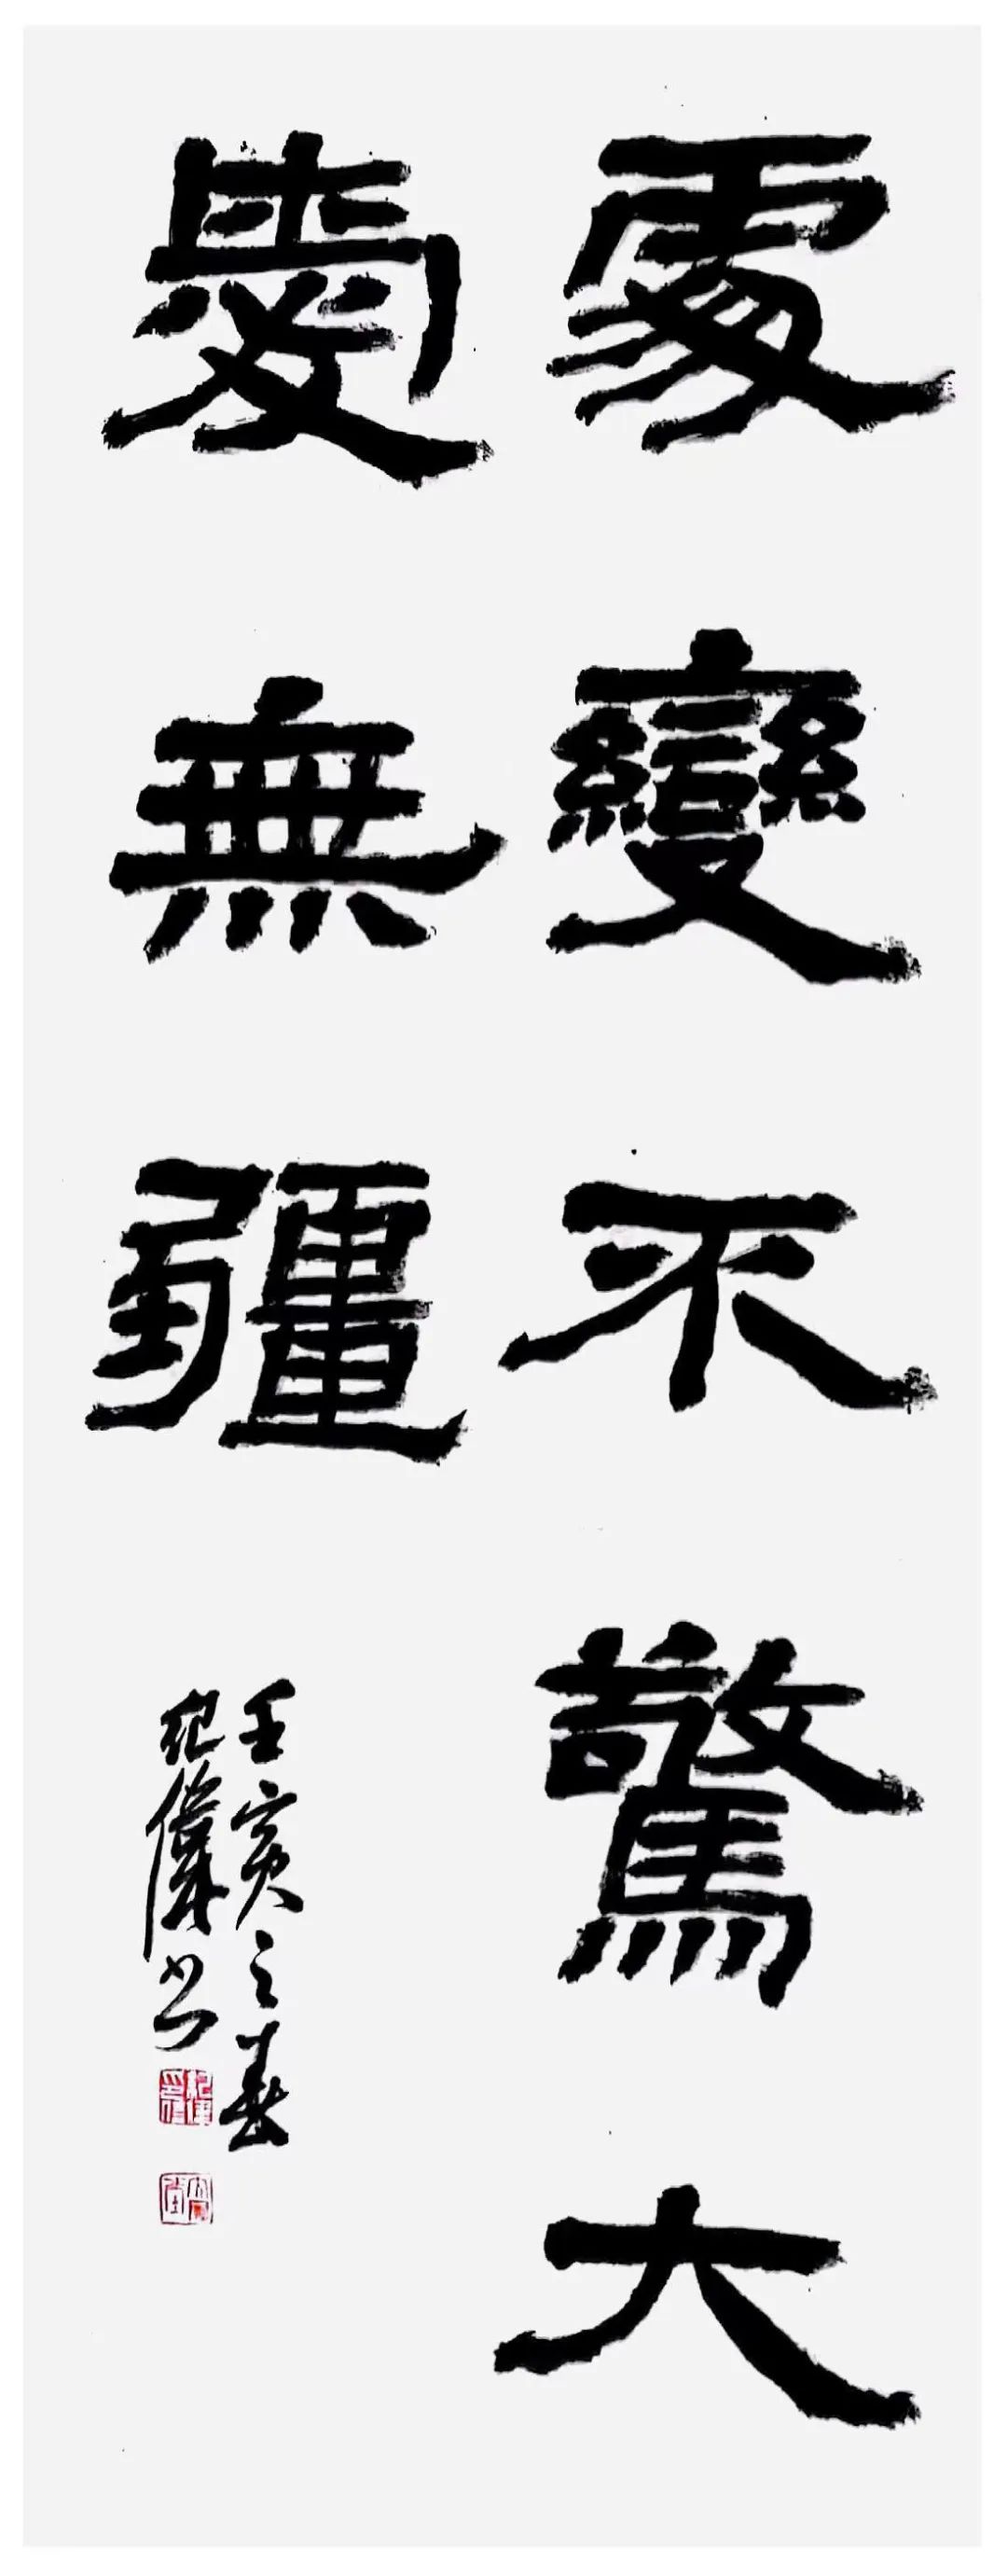 處變不驚大
愛無疆
壬寅之春
紀偉书